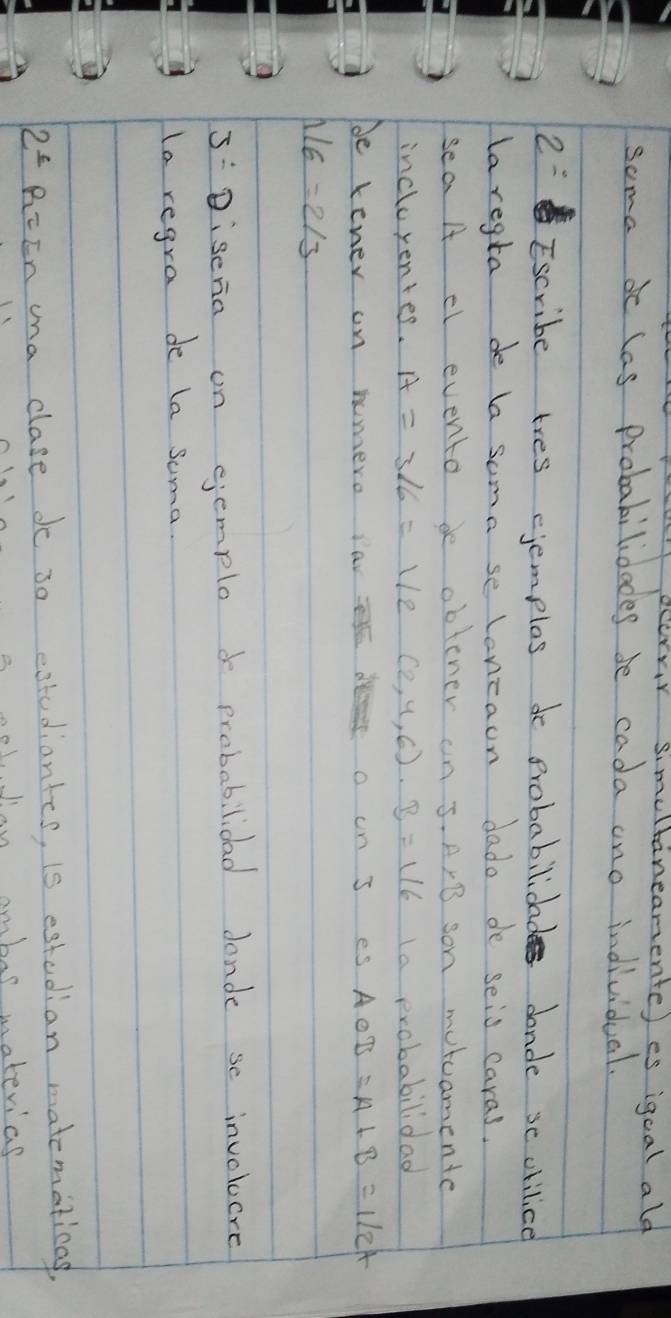 ocurrir simultáneamente) es igual ala
suma de las probabilidades de cada uno individual.
2: Escribe tres ejemplos de probabilidades donde se utilice
la regla de la suma se lanzaun dado de seis caras.
sea A el evento de obtener un 3. A y B son mutuamente
incluyentes. A = 3/6 = 1/2 (2,4,6). B = 1/6 la probabilidad
de tener un numero Par o un 3 es A o B = A + B = 1/2 +
1/6 = 2/3
3: Diseña un ejemplo de probabilidad donde se involucre
la regra de la suma.
R= En una clase de 30 estudiantes, 15 estudian matemáticas,
estudian ambas materias